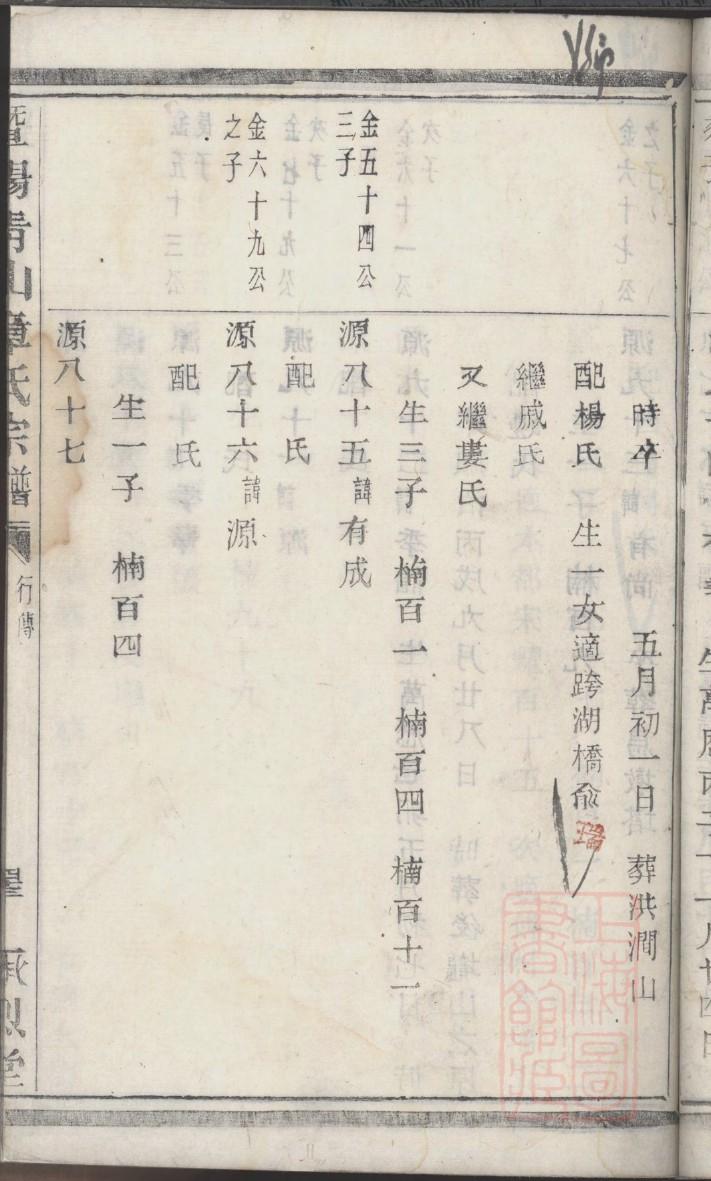 時卒 五月初一日 葬洪澗山
配楊氏 生一女適跨湖橋俞
繼戚氏
又繼婁氏
生三子 楠百一 楠百四 楠百十一
金五十四公
三子
源八十五諱有成
配 氏
金六十九公
之子
源八十六諱源
配 氏
生一子 楠百四
源八十七
暨陽青山章氏宗譜
行傳
承烈堂
上海圖
書館藏